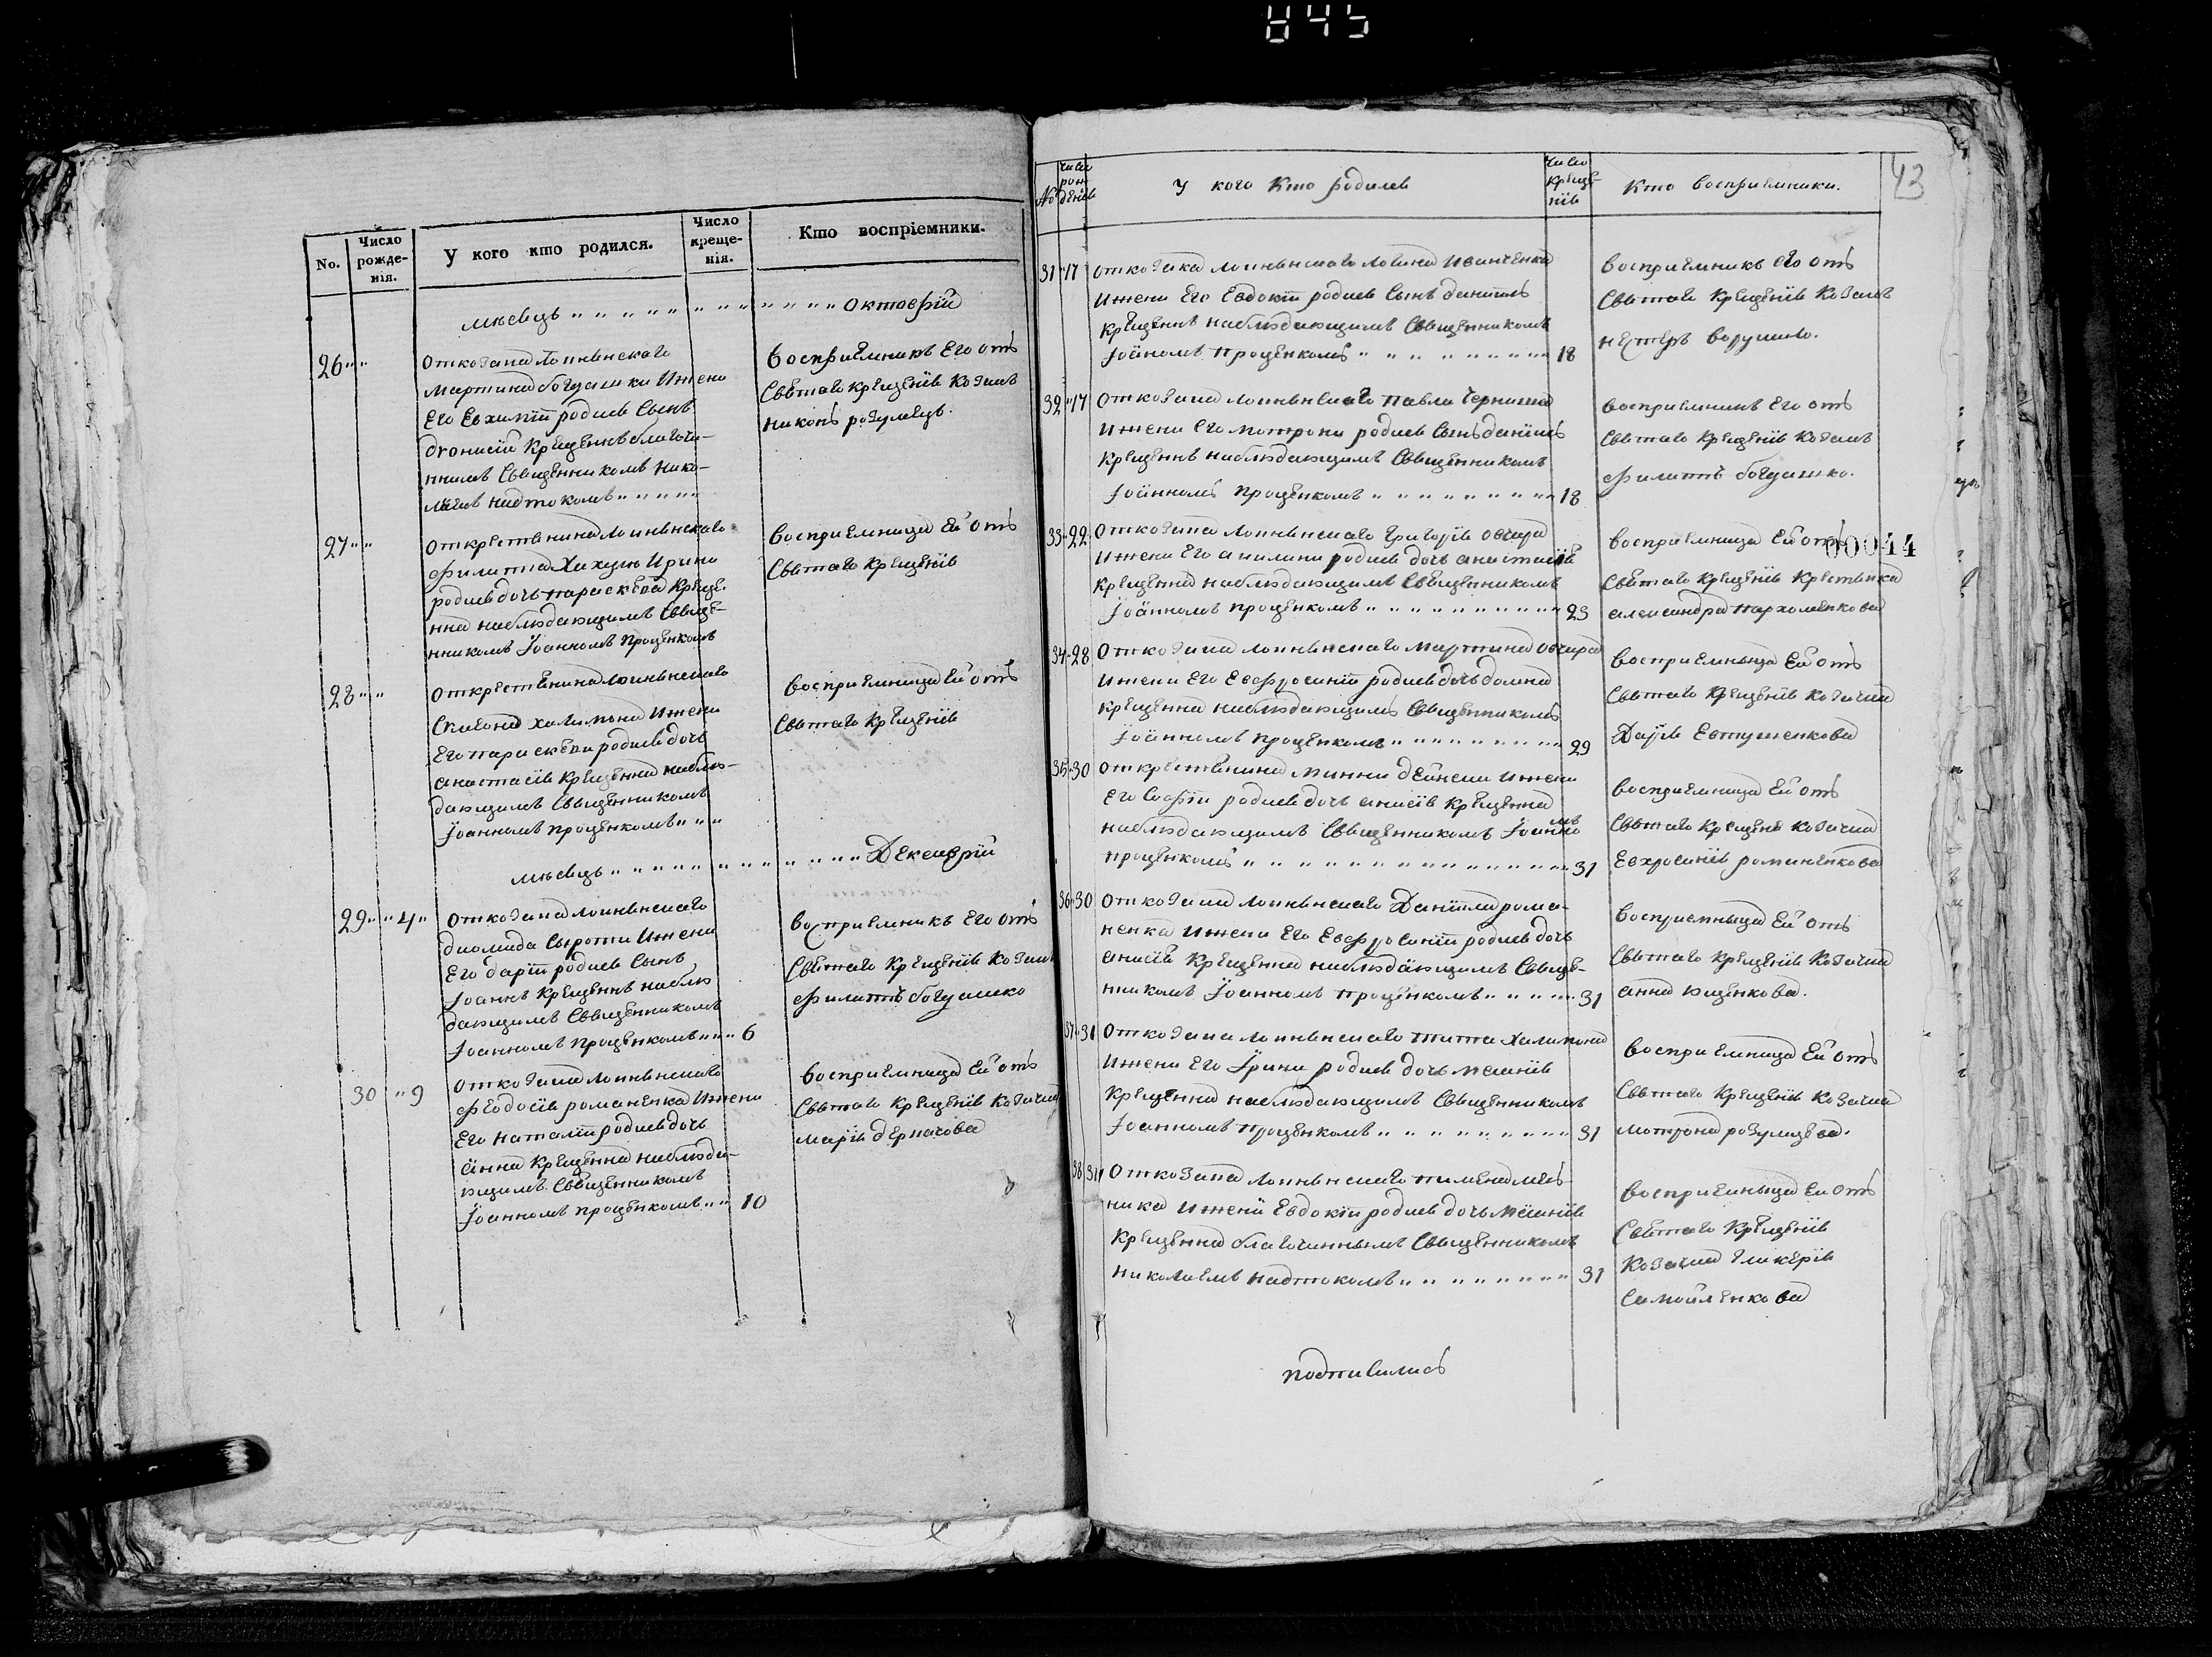 845
No.
Число рожде-нія.
У кого кто родился.
Число креще-нія.
Кто воспріемники.
мѣсяцъ октоврій
26
от козака
Мартина богдашки и жени
Его Евхиміи родися Сынъ
Крещеннъ благочи-
ннимъ Священникомъ Нико-
лаемъ надтокомъ
восприемникъ Его отъ
Святаго крещенія козакъ
никонъ розумецъ.
27
от крестянина
филиппа Ирини
родися дочь параскева Креще-
нна наблюдающимъ Священ-
нникомъ Іоанномъ Проценкомъ
восприемница Ей отъ
Святаго крещенія
28
от крестянина
Симеона халимона и жени
Его параскеви родися дочь
анастасія Крещенна наблю-
дающимъ Священникомъ
Іоанномъ проценкомъ
восприемница Ей отъ
Святаго Крещенія
мѣсяцъ Декемврій
29 4
от козака
диомида Сироти и жени
Его даріи родися Сынъ
Іоаннъ Крещеннъ наблю
дающимъ Священникомъ
Іоанномъ проценкомъ 6
восприемникъ Его отъ
Святаго Крещенія козакъ
филиппъ богдашко
30 9
от козака
феодосія романенка и жени
Его наталіи родися дочь
анна Крещенна наблюда-
ющимъ Священникомъ
Іоанномъ проценкомъ 10
восприемница Ей отъ
Святаго Крещенія козачка
марія дерпачова
№
число рож деніе
У кого кто родился
число креще нія
Кто восприемники.
43
31 17
от козака Иванченка
и жени Его Евдокіи родися Сынъ даніилъ
крещеннъ наблюдающимъ Священникомъ
Іоанномъ проценкомъ 18
восприемникъ его отъ
Святаго Крещенія козакъ
нестеръ ворушило.
32 17
от козака павла Черниша
и жени Его мотрони родися Сынъ даніилъ
Крещеннъ наблюдающимъ Священникомъ
Іоанномъ проценкомъ 18
восприемникъ Его отъ
Святаго Крещенія козакъ
филиппъ богдашко.
33 22
от козака Григорія овчара
и жени Его акилини родися дочь анастасія
крещенна наблюдающимъ Священникомъ
Іоанномъ проценкомъ 23
восприемница Ей отъ
00044
Святаго Крещенія Крестянка
александра пархоменкова
34 28
от козака мартина овчара
и жени Его Евфросиніи родися дочь домна
крещенна наблюдающимъ Священникомъ
Іоанномъ проценкомъ 29
восприемныца Ей отъ
Святаго Крещенія козачка
Дарія Евтушенкова
35 30
от крестянина минни дейнеки и жени
Его Софіи родися дочь анисія крещенна
наблюдающимъ Священникомъ Іоанномъ
проценкомъ 31
восприемница Ей отъ
Святаго Крещенія козачка
Евхросинія романенкова
36 30
от козака Даніила рома-
ненка и жени Его Евфросиніи родися дочь
анисія Крещенна наблюдающимъ Священ-
нникомъ Іоанномъ проценкомъ 31
восприемныца Ей отъ
Святаго Крещенія козачка
анна яценкова.
37 31
от козака тита Халимона
и жени Его Ірини родися дочь меланія
Крещенна наблюдающимъ Священникомъ
Іоанномъ проценкомъ 31
восприемница Ей отъ
Святаго Крещенія козачка
мотрона розумцева.
38 31
от козака пимена мель-
ника и жени Евдокіи родися дочь меланія
Крещенна благочиннымъ Священникомъ
николаемъ надтокомъ 31
восприемныца Ей отъ
Святаго Крещенія
козачка гликерія
Самойленкова
подписались